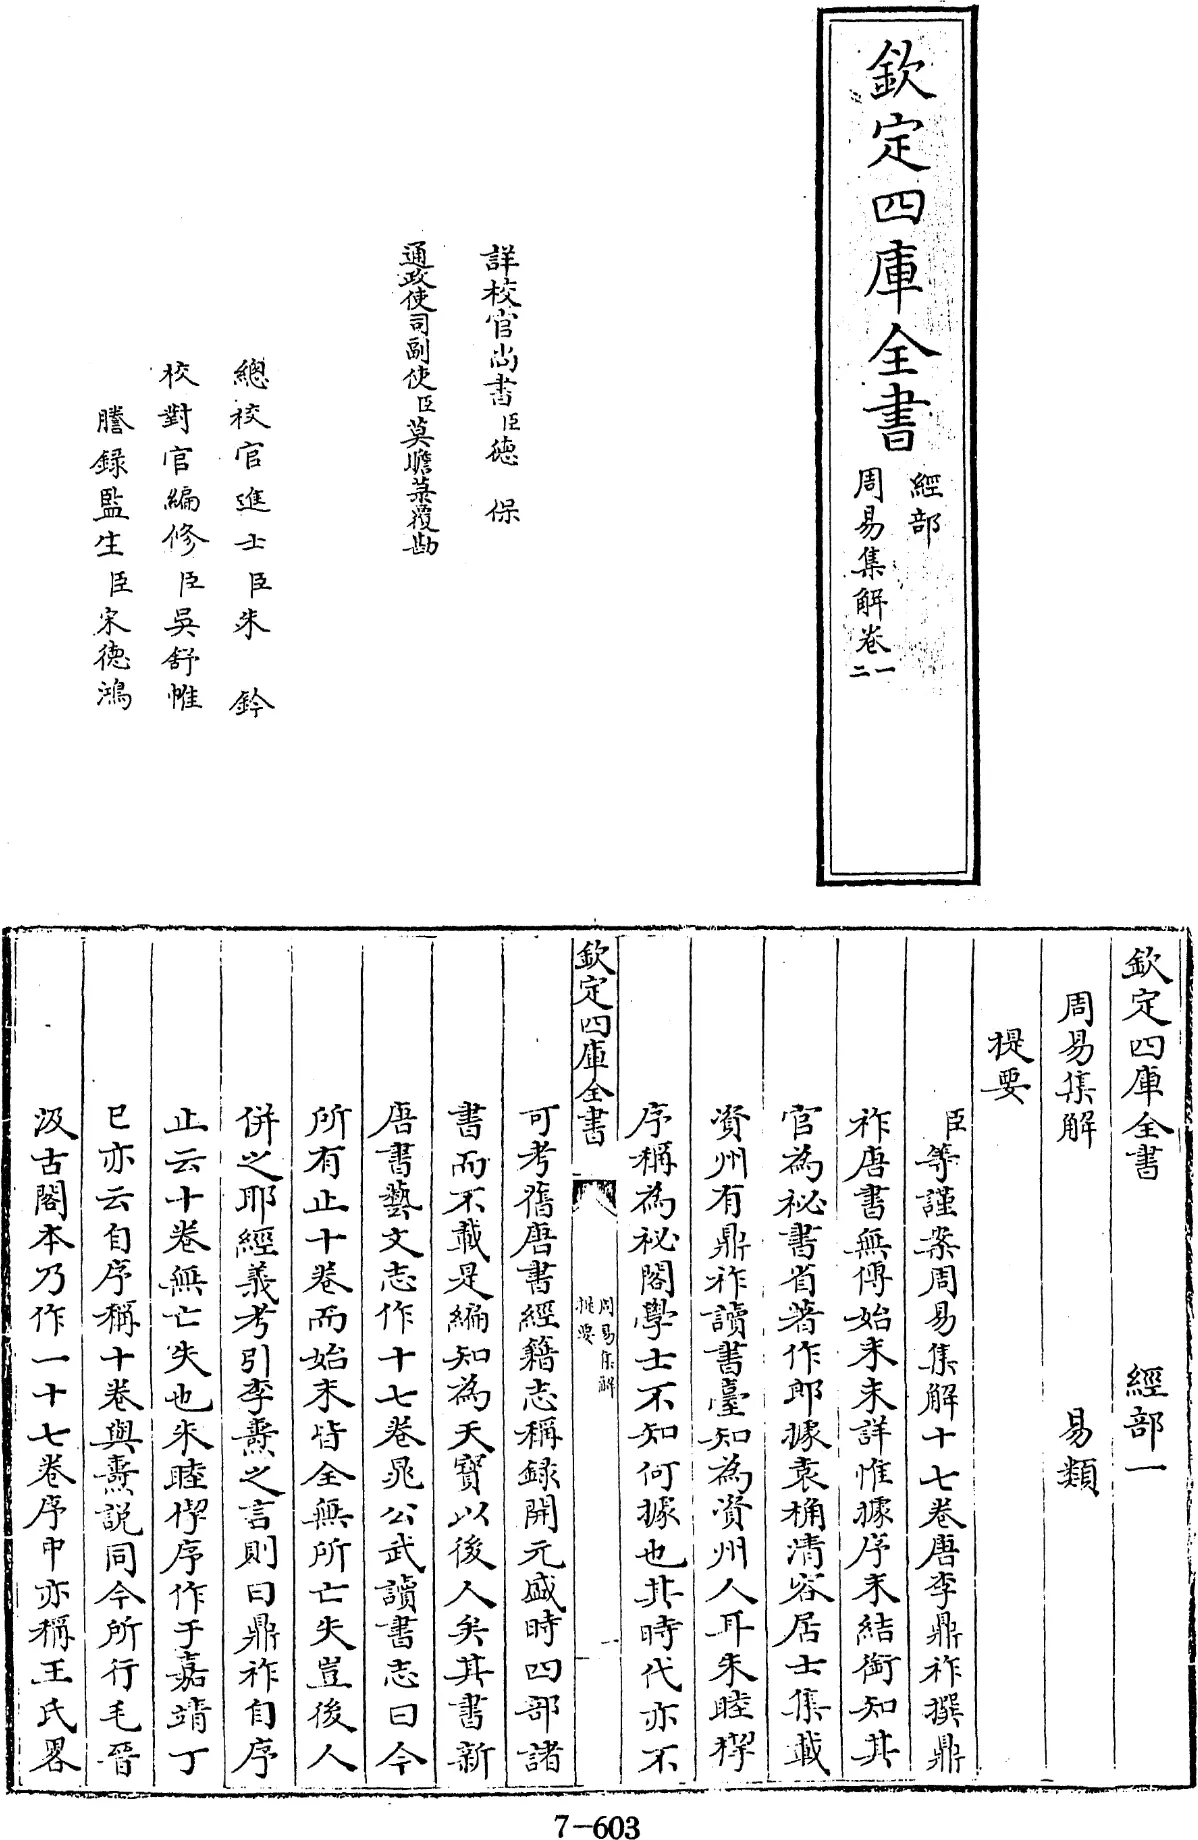 欽定四庫全書
經部
周易集解卷一
二
詳校官尚書臣德保
通政使司副使臣莫瞻菉覆勘
總校官進士臣朱鈐
校對官編修臣吳舒帷
謄錄監生臣宋德鴻
欽定四庫全書 經部一
周易集解 易類
提要
臣等謹案周易集解十七卷唐李鼎祚撰鼎
祚唐書無傳始末未詳惟據序末結銜知其
官為祕書省著作郎據袁桷清容居士集載
資州有鼎祚讀書臺知為資州人耳朱睦㮮
序稱為祕閣學士不知何據也其時代亦不
欽定四庫全書
周易集解
提要
一
可考舊唐書經籍志稱録開元盛時四部諸
書而不載是編知為天寶以後人矣其書新
唐書藝文志作十七卷晁公武讀書志曰今
所有止十卷而始末皆全無所亡失豈後人
併之耶經義考引李燾之言則曰鼎祚自序
止云十卷無亡失也朱睦㮮序作于嘉靖丁
巳亦云自序稱十卷與燾說同今所行毛晉
汲古閣本乃作一十七卷序中亦稱王氏畧
7-603